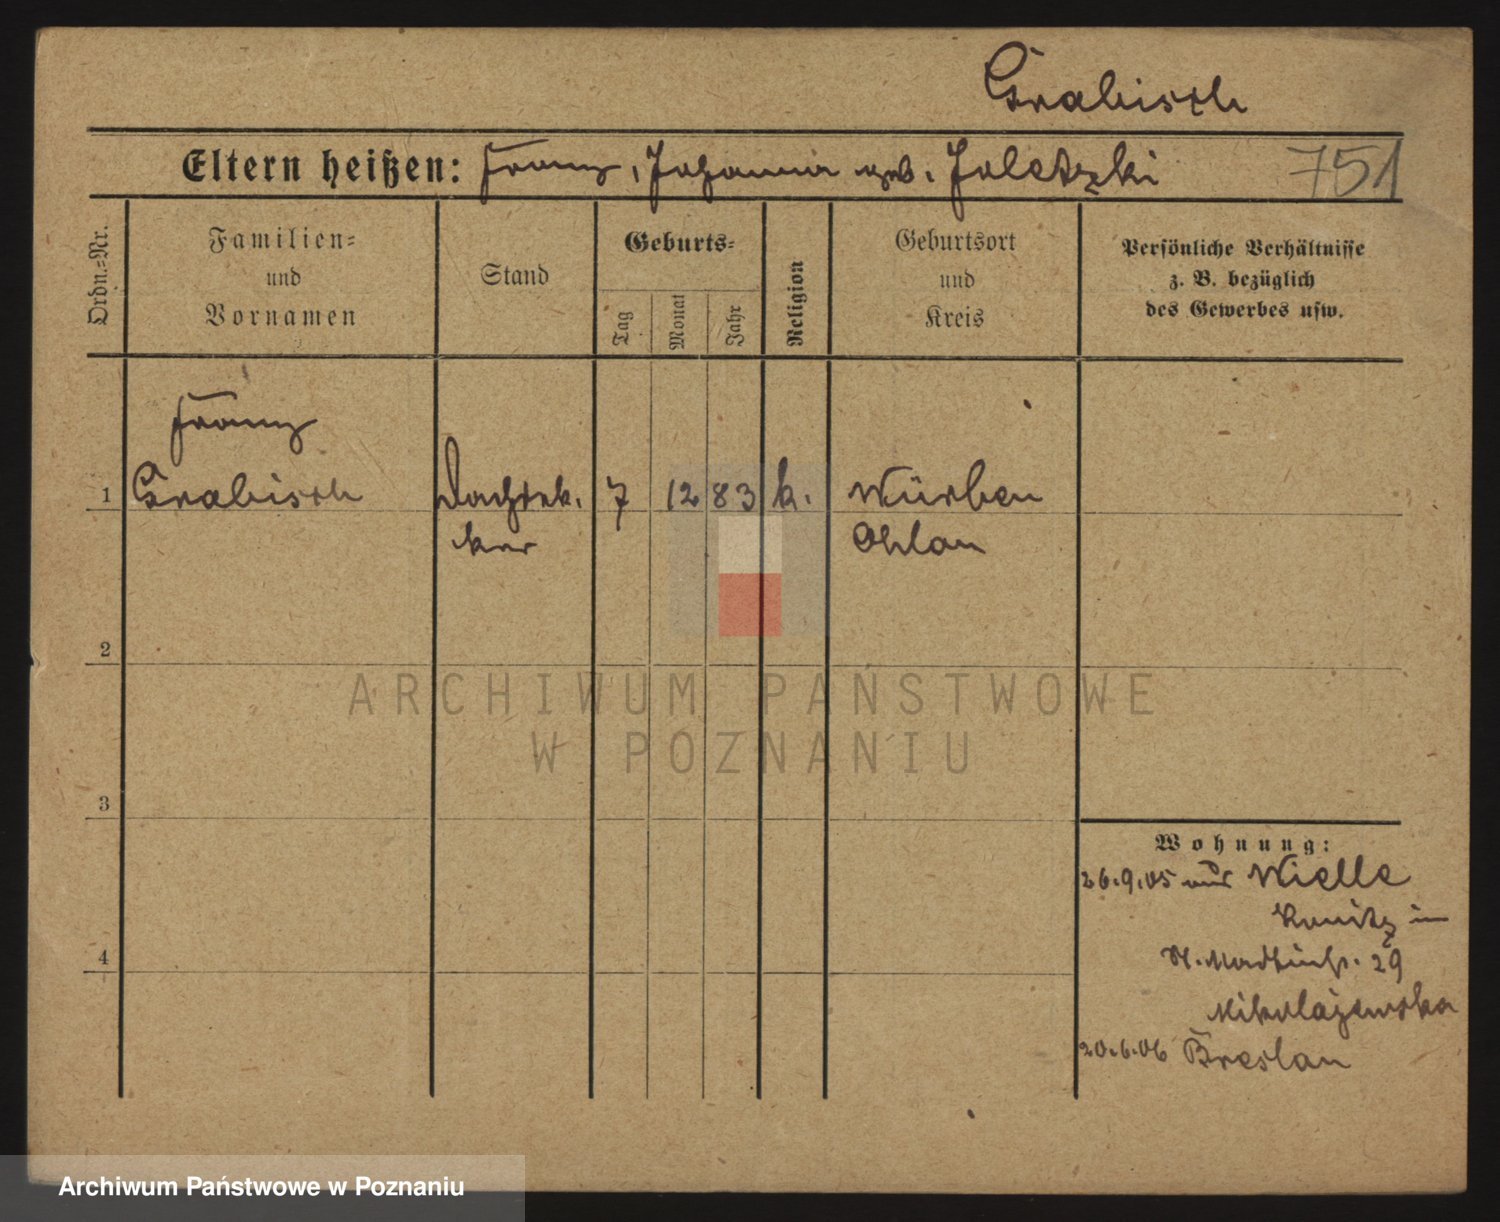 Grabisch
Eltern heißen: Franz, Johanna geb. Joletzki
751
Ordn.-Nr.
Familien- und Vornamen
Stand
Geburts-
Tag
Monat
Jahr
Religion
Geburtsort und Kreis
Persönliche Verhältnisse
z. B. bezüglich
des Gewerbes usw.
Franz
1 Grabisch Dachdek- 7 12 83 k. Würben
ker Ohlau
2
3
4
Wohnung:
26.9.05 aus Wielle
Konitz in
St. Martinstr. 29
Mikolajewska
20.6.06 Breslau
ARCHIWUM PAŃSTWOWE
W POZNANIU
Archiwum Państwowe w Poznaniu